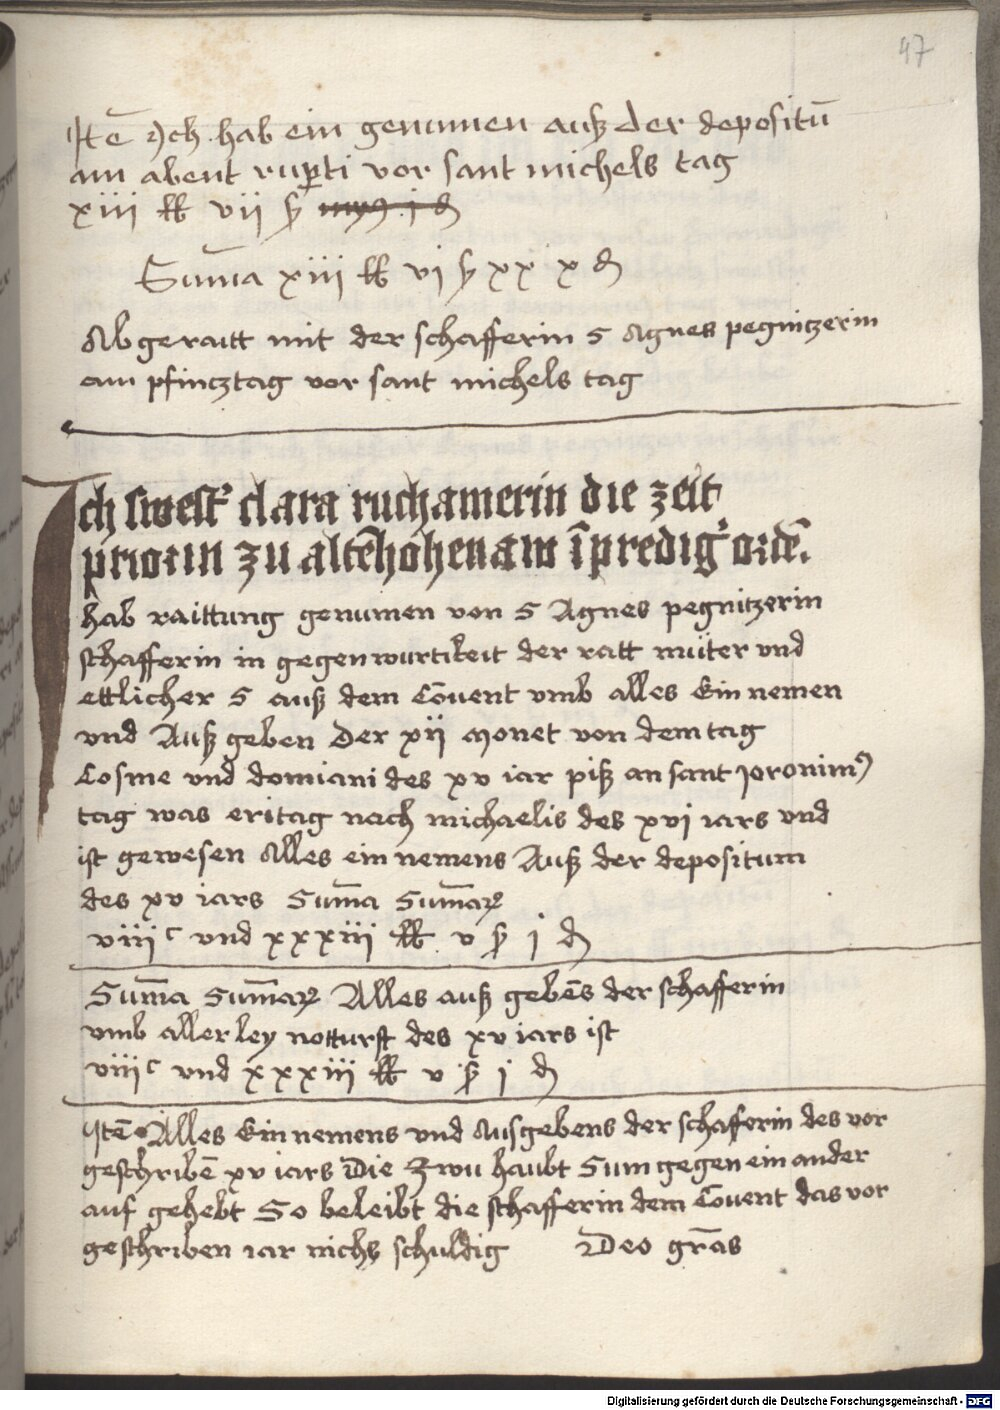 47
Itē Ich hab ein genumen auß der depositū
am abent ruꝑti vor sant michels tag
xiii lb vii ß
Suma̅ xiii lb vi ß xx x d
Abgeraitt mit der schafferin S Agnes pegnitzerin
am pfincztag vor sant michels tag
Ich swest' clara ruchamerin die zeit
priorin zu altēhohenaw ī predig' ordē.
hab raittung genumen von S Agnes pegnitzerin
schafferin in gegenwurtikeit der ratt muter vnd
ettlicher S auß dem Cōuent vmb alles Ein nemen
vnd Auß geben Der xii monet von dem tag
Cosme vnd domiani des xv iar piß an sant Jeronimꝰ
tag was eritag nach michaelis des xvi iars vnd
ist gewesen Alles ein nemens Auß der depositum
des xv iars Sum̅a Sum̅aꝝ
viii c vnd xxxiii lb v ß i d
Sum̅a Sum̅aꝝ Alles auß gebēs der schafferin
vmb allerley notturft des xv iars ist
viii c vnd xxxiii lb v ß i d
Itē Alles Ein nemens vnd Ausgebens der schafferin des vor
geschribē xv iars Die Zwu haubt Sum gegen ein ander
auf gehebt So beleibt die schafferin dem Cōuent das vor
geschriben iar nichs schuldig Deo gr̅as
Digitalisierung gefördert durch die Deutsche Forschungsgemeinschaft - DFG